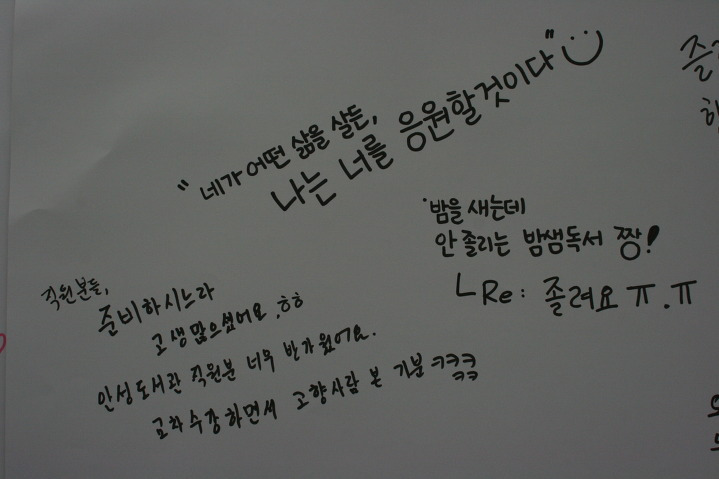 "네가 어떤 삶을 살든,
나는 너를 응원할것이다"
밤을 새는데
안 졸리는 밤샘독서 짱!
ㄴRe: 졸려요 ㅠ.ㅠ
직원분들,
준비하시느라
고생많으셨어요.ㅎㅎ
안성도서관 직원분 너무 반가웠어요.
교차수강하면서 고향사람 본 기분 ㅋㅋㅋ
ㅋㅋ
즐